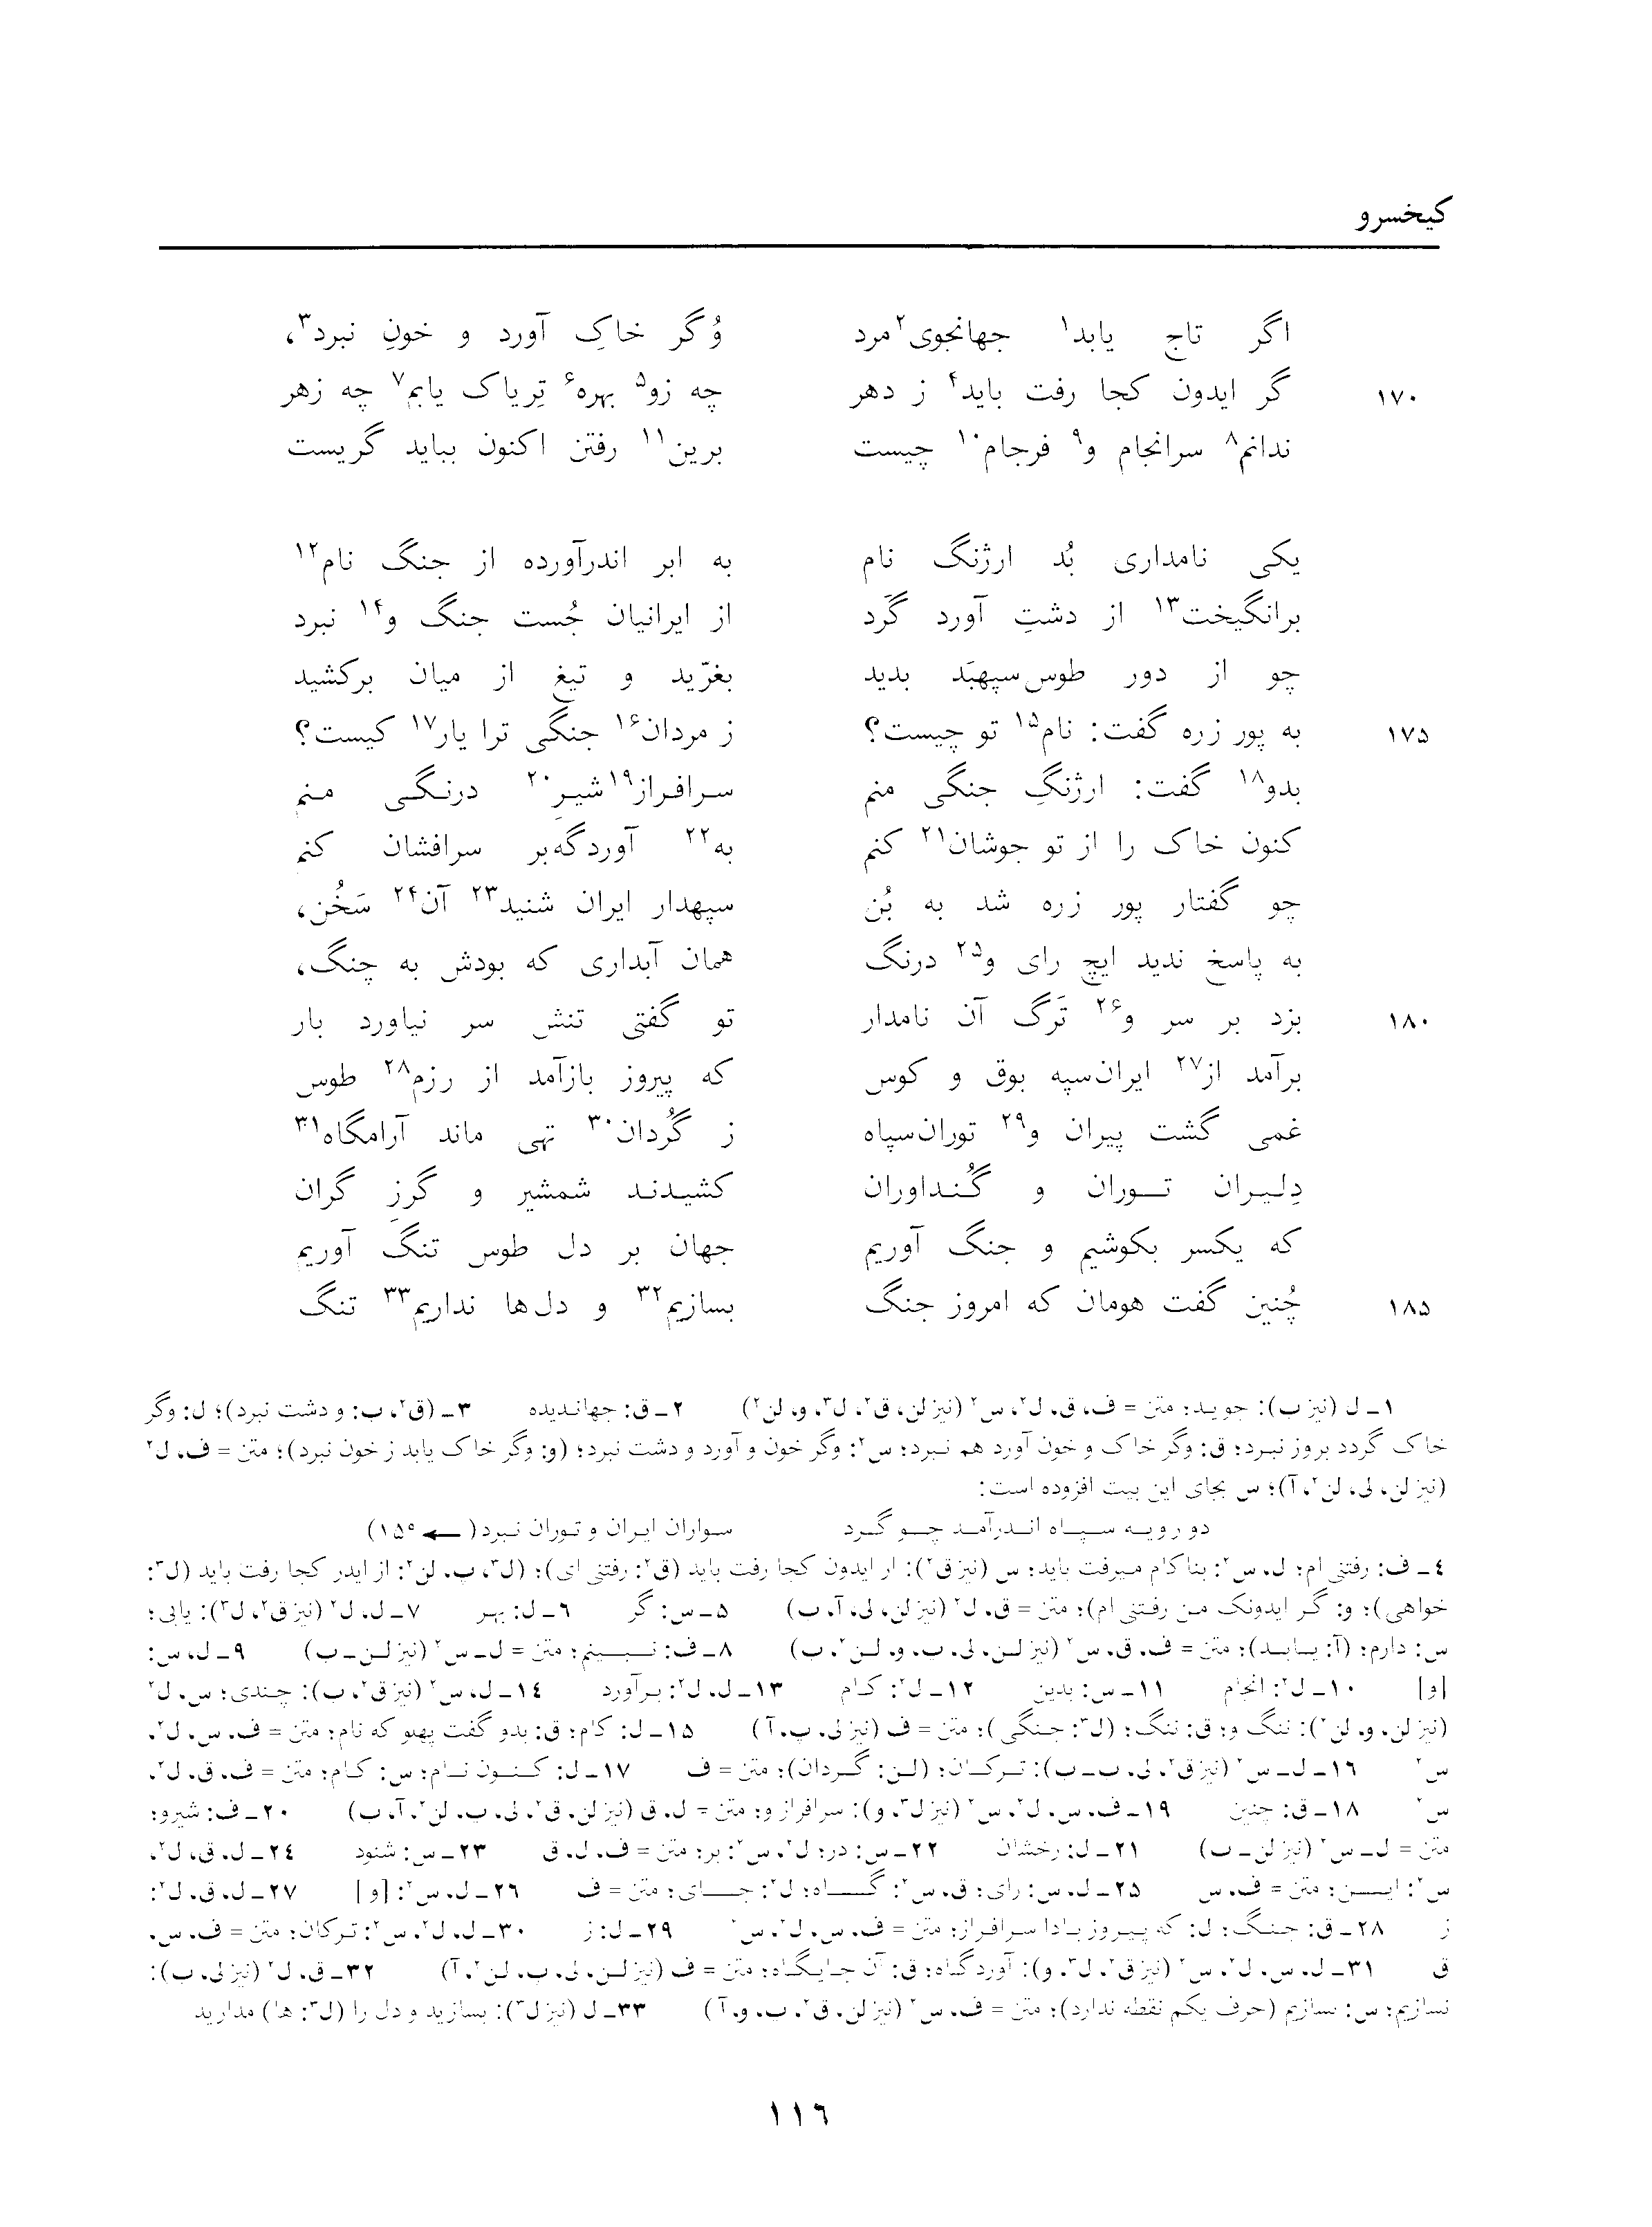 کیخسرو
اگر تاج یابد۱ جهانجوی۲ مرد وُگر خاکِ آورد و خونِ نبرد۳،
۱۷۰ گر ایدون کجا رفت باید۴ ز دهر چه زو۵ بهره۶ تِریاک یابم۷ چه زهر
ندانم۸ سرانجام و۹ فرجام۱۰ چیست برین۱۱ رفتن اکنون بباید گریست
یکی نامداری بُد ارژنگ نام به ابر اندرآورده از جنگ نام۱۲
برانگیخت۱۳ از دشتِ آورد گَرد از ایرانیان جُست جنگ و۱۴ نبرد
چو از دور طوس سپهبَد بدید بغرّید و تیغ از میان برکشید
۱۷۵ به پور زره گفت: نام۱۵ تو چیست؟ ز مردان۱۶ جنگی ترا یار۱۷ کیست؟
بدو۱۸ گفت: ارژنگِ جنگی منم سرافراز۱۹ شیرِ۲۰ درنگی منم
کنون خاک را از تو جوشان۲۱ کنم به۲۲ آوردگه‌بر سرافشان کنم
چو گفتار پور زره شد به بُن سپهدار ایران شنید۲۳ آن۲۴ سَخُن،
به پاسخ ندید ایچ رای و۲۵ درنگ همان آبداری که بودش به چنگ،
۱۸۰ بزد بر سر و۲۶ تَرگ آن نامدار تو گفتی تنش سر نیاورد بار
برآمد از۲۷ ایران‌سپه بوق و کوس که پیروز بازآمد از رزم۲۸ طوس
غمی گشت پیران و۲۹ توران‌سپاه ز گُردان۳۰ تهی ماند آرامگاه۳۱
دِلیران توران و گُنداوران کشیدند شمشیر و گرزِ گران
که یکسر بکوشیم و جنگ آوریم جهان بر دل طوس تنگ آوریم
۱۸۵ چُنین گفت هومان که امروز جنگ بسازیم۳۲ و دل‌ها نداریم۳۳ تنگ
۱ـ ل (نیز ب): جوید؛ متن = ف، ق، ل۲، س۲ (نیز لن، ق۲، ل۳، و، لن۲) ۲ـ ق: جهاندیده ۳ـ (ق۲، ب: و دشت نبرد)؛ ل: وگر
خاک گردد بروز نبرد؛ ق: وگر خاک و خون آورد هم نبرد؛ س۲: وگر خون و آورد و دشت نبرد؛ (و: وگر خاک یابد ز خون نبرد)؛ متن = ف، ل۲
(نیز لن، لی، لن۲، آ)؛ س بجای این بیت افزوده است:
دو رویه سپاه اندرآمد چو گرد سواران ایران و توران نبرد (← ۱۵۰)
٤ـ ف: رفتنی ام؛ ل، س۲: بناکام میرفت باید؛ س (نیز ق۲): ار ایدون کجا رفت باید (ق۲: رفتنی ای)؛ (ل۳، پ، لن۲: از ایدر کجا رفت باید (ل۳:
خواهی)؛ و: گر ایدونک من رفتنی ام)؛ متن = ق، ل۲ (نیز لن، لی، آ، ب) ۵ـ س: گر ٦ـ ل: بهر ۷ـ ل، ل۲ (نیز ق۲، ل۳): یابی؛
س: دارم؛ (آ: یابد)؛ متن = ف، ق، س۲ (نیز لن، لی، پ، و، لن۲، ب) ۸ـ ف: نبینم؛ متن = ل ـ س۲ (نیز لن ـ ب) ۹ـ ل، س:
[و] ۱۰ـ ل۲: انجام ۱۱ـ س: بدین ۱۲ـ ل۲: کام ۱۳ـ ل، ل۲: برآورد ۱٤ـ ل، س۲ (نیز ق۲، ب): چندی؛ س، ل۲
(نیز لن، و، لن۲): ننگ و؛ ق: ننگ؛ (ل۳: جنگی)؛ متن = ف (نیز لی، پ، آ) ۱۵ـ ل: کام؛ ق: بدو گفت پهلو که نام؛ متن = ف، س، ل۲،
س۲ ۱٦ـ ل ـ س۲ (نیز ق۲، لی، پ ـ ب): ترکان؛ (لن: گردان)؛ متن = ف ۱۷ـ ل: کنون نام؛ س: کام؛ متن = ف، ق، ل۲،
س۲ ۱۸ـ ق: چنین ۱۹ـ ف، س، ل۲، س۲ (نیز ل۳، و): سرافراز و؛ متن = ل، ق (نیز لن، ق۲، لی، پ، لن۲، آ، ب) ۲۰ـ ف: شیرو؛
متن = ل ـ س۲ (نیز لن ـ ب) ۲۱ـ ل: رخشان ۲۲ـ س: در؛ ل۲، س۲: بر؛ متن = ف، ل، ق ۲۳ـ س: شنود ۲٤ـ ل، ق، ل۲،
س۲: این؛ متن = ف، س ۲۵ـ ل، س: رای؛ ق، س۲: گاه؛ ل۲: جای؛ متن = ف ۲٦ـ ل، س۲: [و] ۲۷ـ ل، ق، ل۲:
ز ۲۸ـ ق: جنگ؛ ل: که پیروز بادا سرافراز؛ متن = ف، س، ل۲، س۲ ۲۹ـ ل: ز ۳۰ـ ل، ل۲، س۲: ترکان؛ متن = ف، س،
ق ۳۱ـ ل، س، ل۲، س۲ (نیز ق۲، ل۳، و): آوردگاه؛ ق: آن جایگاه؛ متن = ف (نیز لن، لی، پ، لن۲، آ) ۳۲ـ ق، ل۲ (نیز لی، ب):
نسازیم؛ س: سازیم (حرف یکم نقطه ندارد)؛ متن = ف، س۲ (نیز لن، ق۲، پ، و، آ) ۳۳ـ ل (نیز ل۳): بسازید و دل را (ل۳: ها) مدارید
۱۱٦